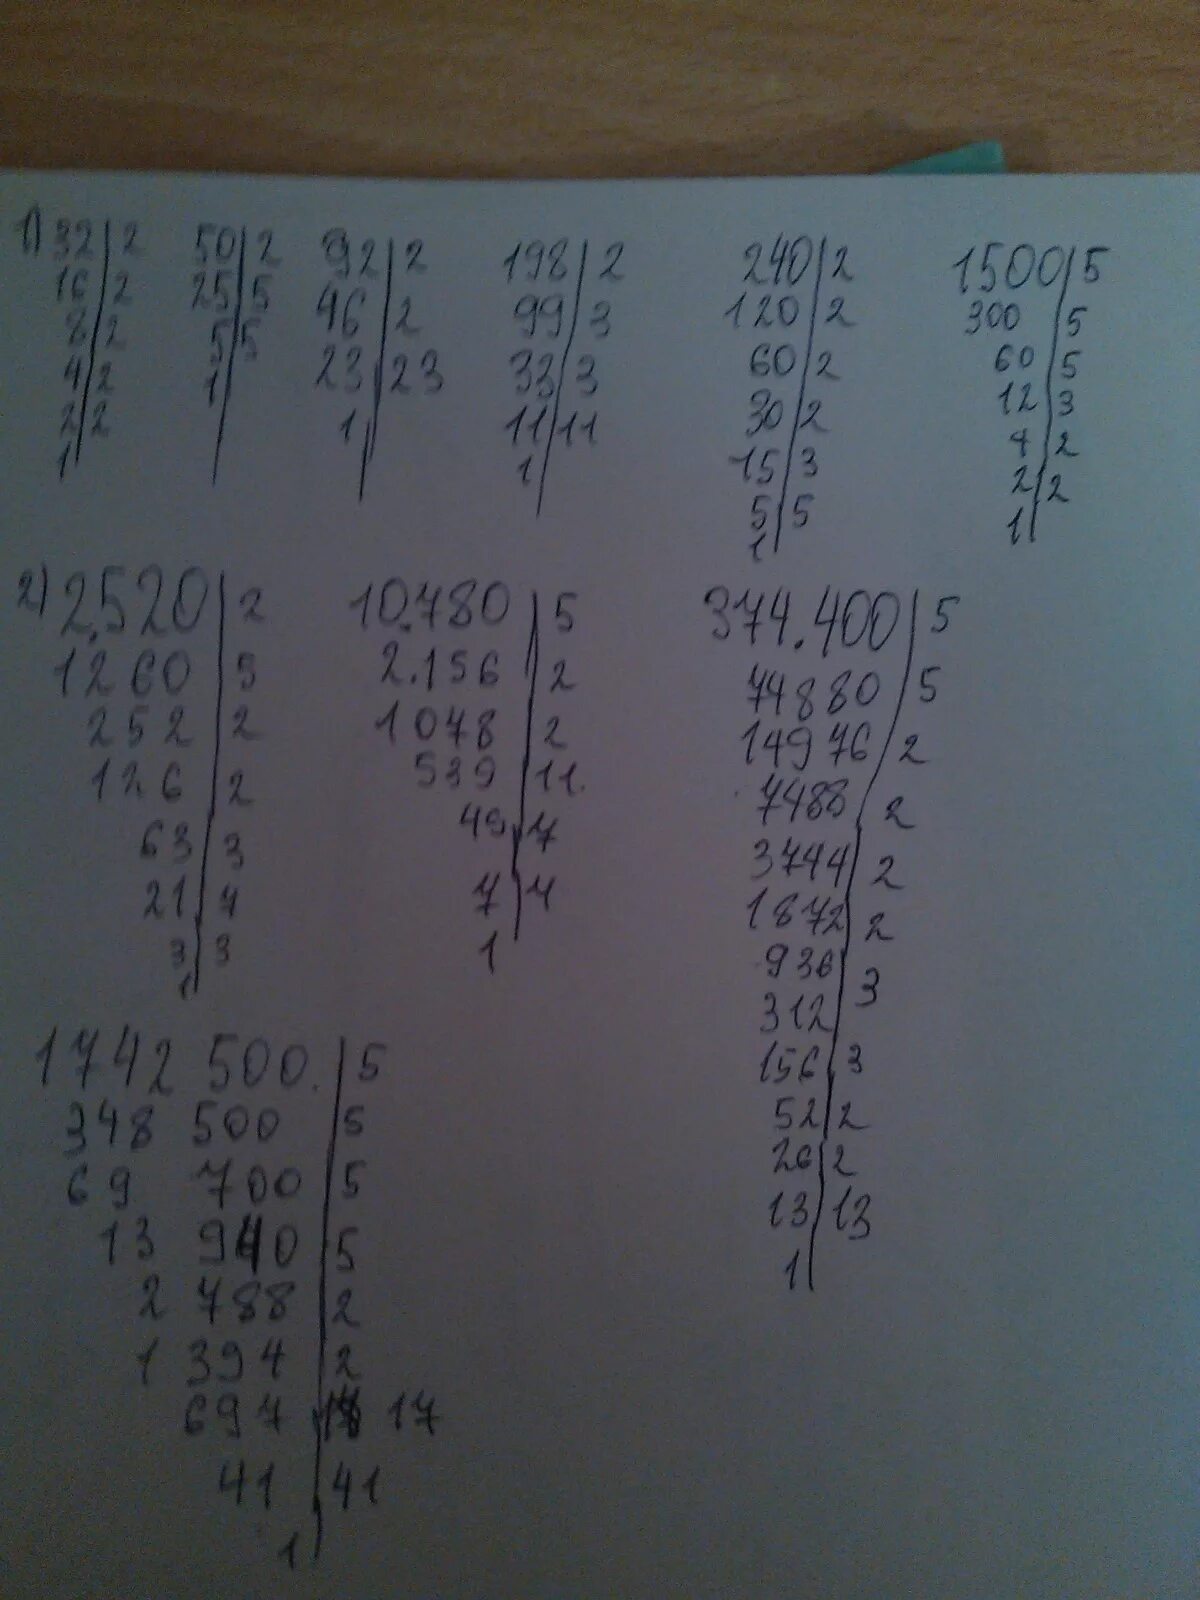 1) 32 | 2
16 | 2
8 | 2
4 | 2
2 | 2
1
50 | 2
25 | 5
5 | 5
1
92 | 2
46 | 2
23 | 23
1
198 | 2
99 | 3
33 | 3
11 | 11
1
240 | 2
120 | 2
60 | 2
30 | 2
15 | 3
5 | 5
1
1500 | 5
300 | 5
60 | 5
12 | 3
4 | 2
2 | 2
1
2) 2.520 | 2
1260 | 5
252 | 2
126 | 2
63 | 3
21 | 7
3 | 3
1
10.780 | 5
2.156 | 2
1078 | 2
539 | 11
49 | 7
7 | 7
1
374.400 | 5
74880 | 5
14976 | 2
7488 | 2
3744 | 2
1872 | 2
936 | 3
312
156 | 3
52 | 2
26 | 2
13 | 13
1
1742 500 | 5
348 500 | 5
69 700 | 5
13 940 | 5
2 788 | 2
1 394 | 2
697 | 17
41 | 41
1